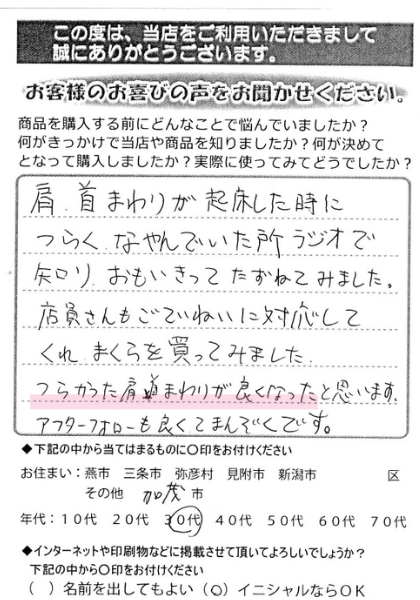 この度は、当店をご利用いただきまして
誠にありがとうございます。
お客様のお喜びの声をお聞かせください。
商品を購入する前にどんなことで悩んでいましたか？
何がきっかけで当店や商品を知りましたか？何が決めて
となって購入しましたか？実際に使ってみてどうでしたか？
肩、首まわりが起床した時に
つらく、なやんでいた所ラジオで
知り、おもいきってたずねてみました。
店員さんもごていねいに対応して
くれ、まくらを買ってみました。
つらかった肩首まわりが良くなったと思います。
アフターフォローも良くてまんぞくです。
◆下記の中から当てはまるものに〇印をお付けください
お住まい：燕市 三条市 弥彦村 見附市 新潟市 区
その他 加茂 市
年代：１０代 ２０代 ３０代 ４０代 ５０代 ６０代 ７０代
◆インターネットや印刷物などに掲載させて頂いてよろしいでしょうか？
下記の中から〇印をお付けください
（ ）名前を出してもよい （○）イニシャルならＯＫ